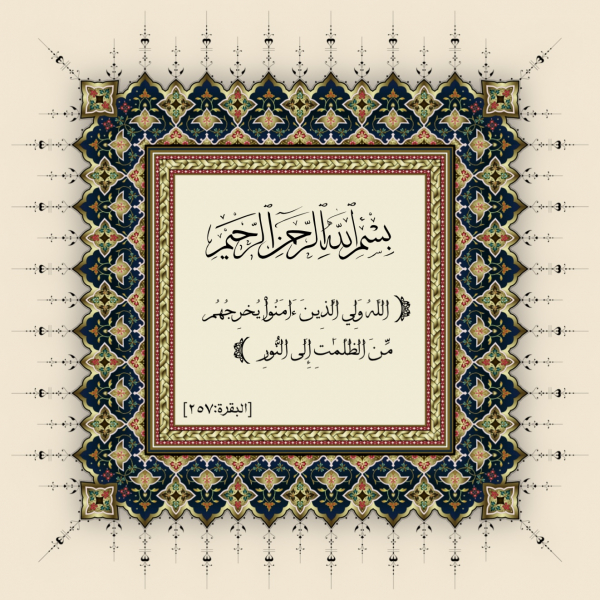 بِسْمِ ٱللَّهِ ٱلرَّحْمَٰنِ ٱلرَّحِيمِ
﴿ اللَّهُ وَلِي الَّذِينَ ءَامَنُواْ يُخْرِجُهُم
مِّنَ الظُّلُمَٰتِ إِلَى النُّورِ ﴾
[البقرة:٢٥٧]